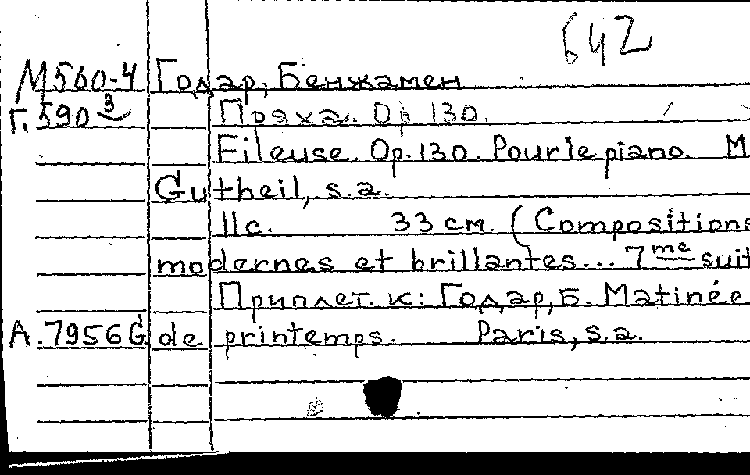 642
М560-4 Годар, Бенжамен
Г.590-3 Пряха. Op. 130.
Fileuse. Op. 130. Pour le piano. M
Gutheil, s.a.
11с. 33 см. (Compositions
modernes et brillantes... 7me suit
Приплет. к: Годар, Б. Matinée
А.7956G de printemps. Paris, s.a.